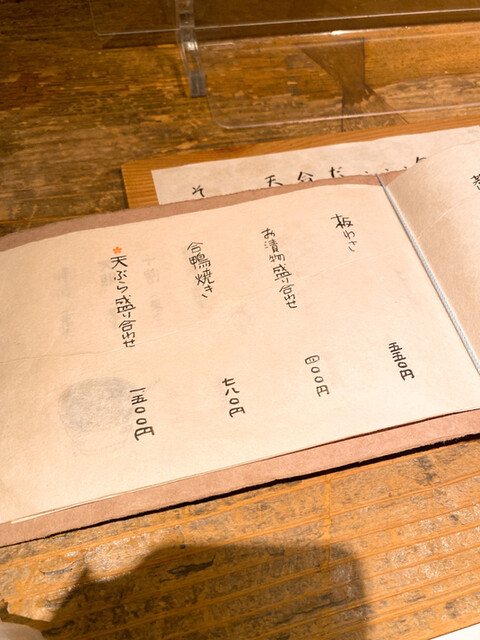 板わさ
五五〇円
お漬物盛り合わせ
四〇〇円
合鴨焼き
七八〇円
天ぷら盛り合わせ
一五〇〇円